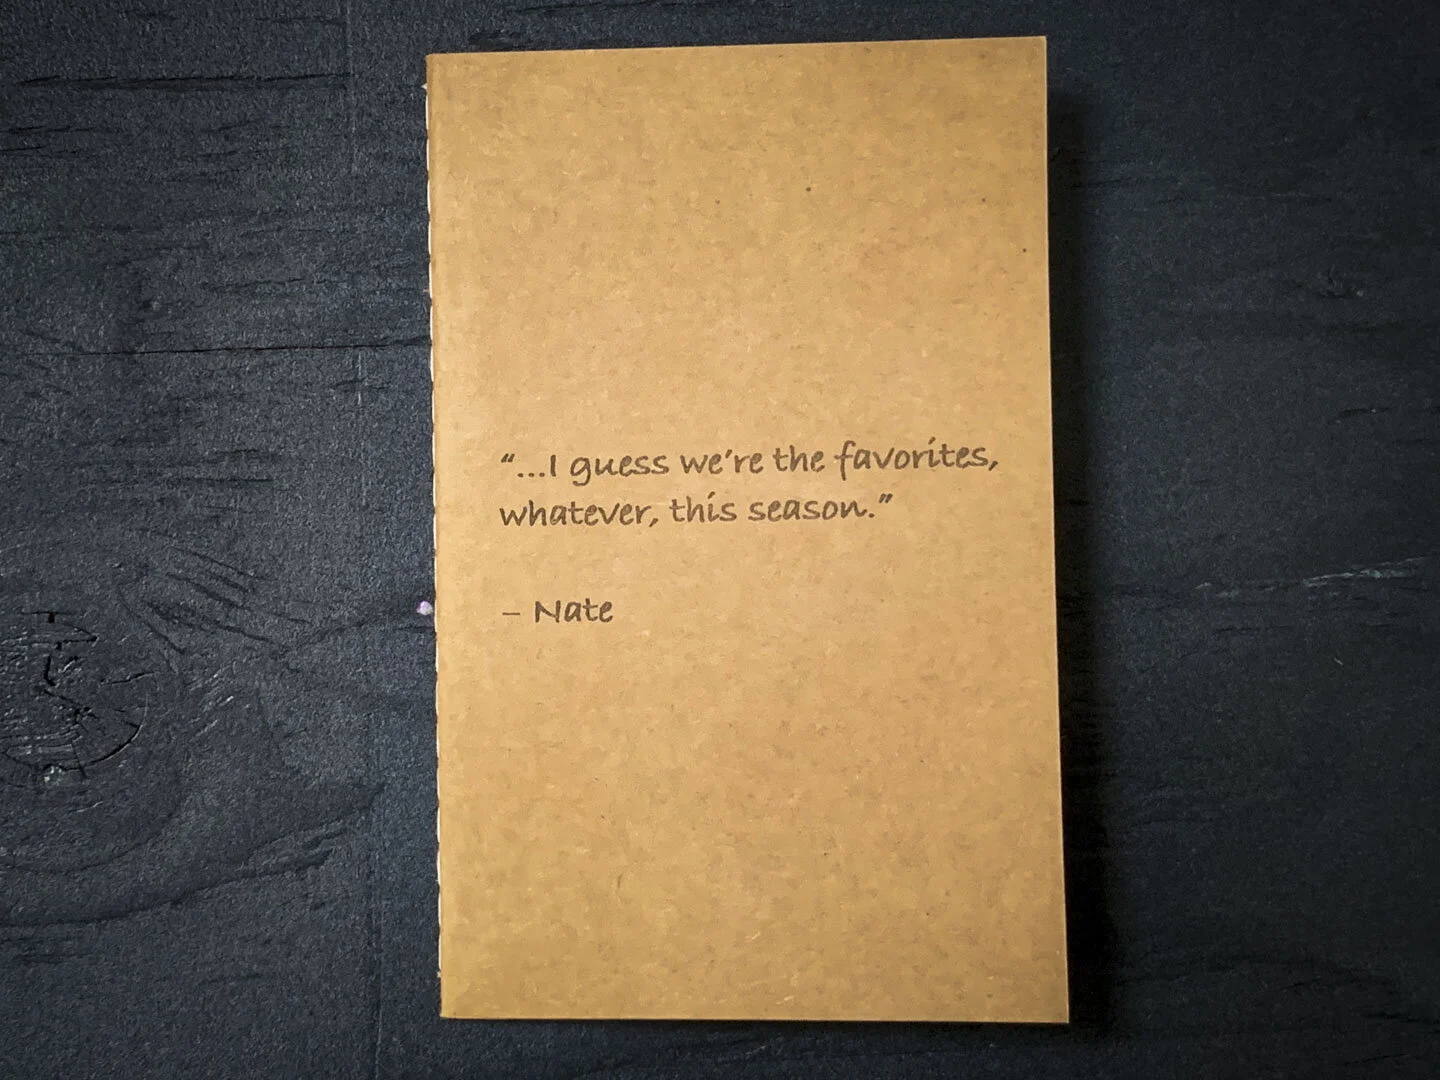 “...I guess we’re the favorites,
whatever, this season.”
– Nate